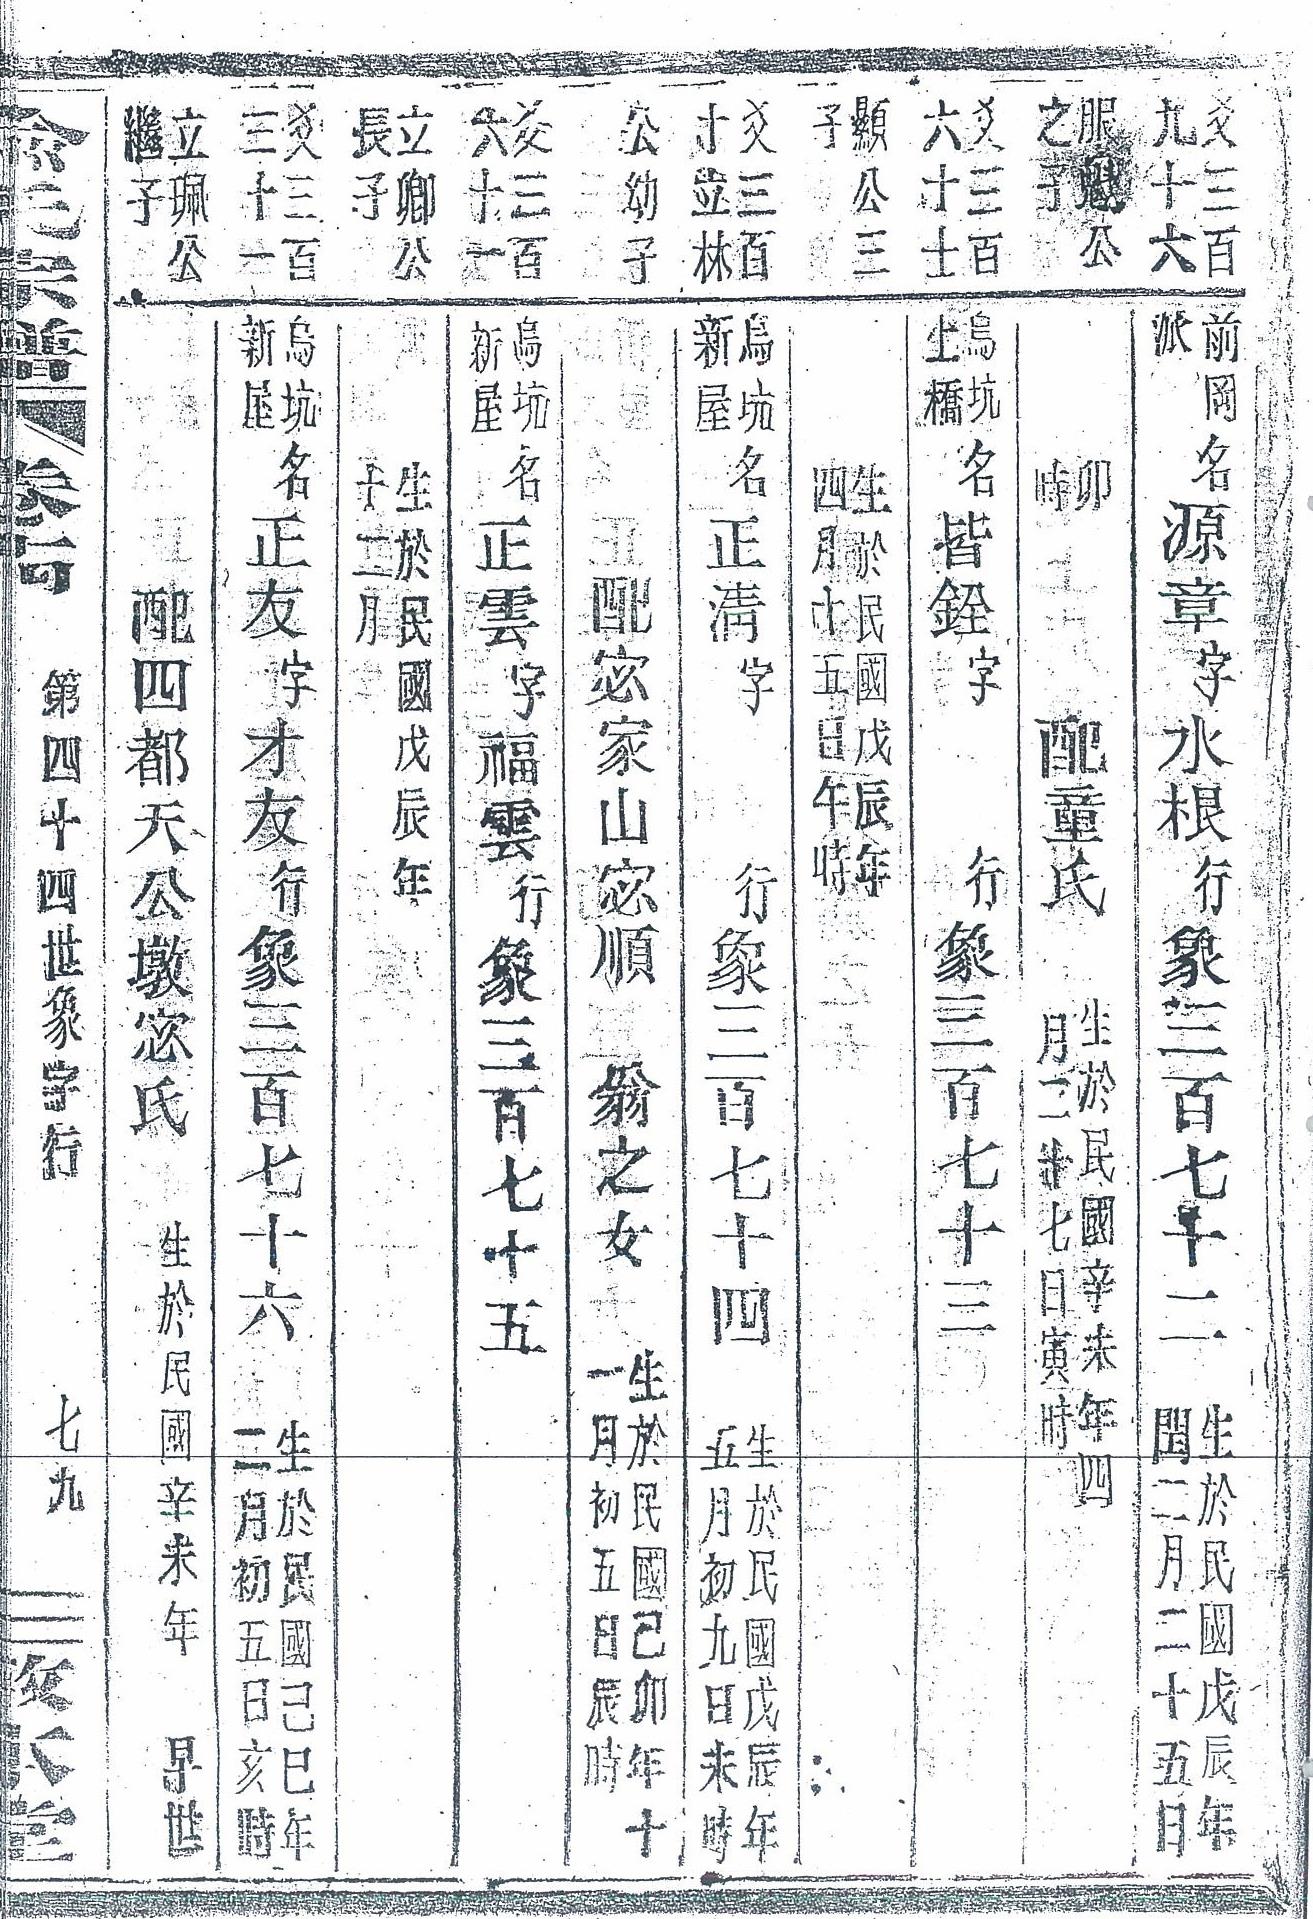 爻三百
九十六
服勳公
之子
前岡
派
名源章字水根行象三百七十二
生於民國戊辰年
閏二月二十五日
卯
時
配童氏
生於民國辛未年四
月二十七日寅時
爻三百
六十士
顯公三
子
烏坑
上橋
名皆銓字 行象三百七十三
生於民國戊辰年
四月十五日午時
爻三百
十並林
公幼子
烏坑
新屋
名正淸字 行象三百七十四
生於民國戊辰年
五月初九日未時
配宓家山宓順 翁之女
生於民國己卯年十
一月初五日辰時
爻三百
六十一
立卿公
長子
烏坑
新屋
名正雲字福雲行象三百七十五
生於民國戊辰年
十二月
爻三百
三十一
立珮公
繼子
烏坑
新屋
名正友字才友行象三百七十六
生於民國己巳年
二月初五日亥時
配四都天公墩宓氏
生於民國辛未年 早世
氏宗譜
卷
第四十四世象字行
七九
堂